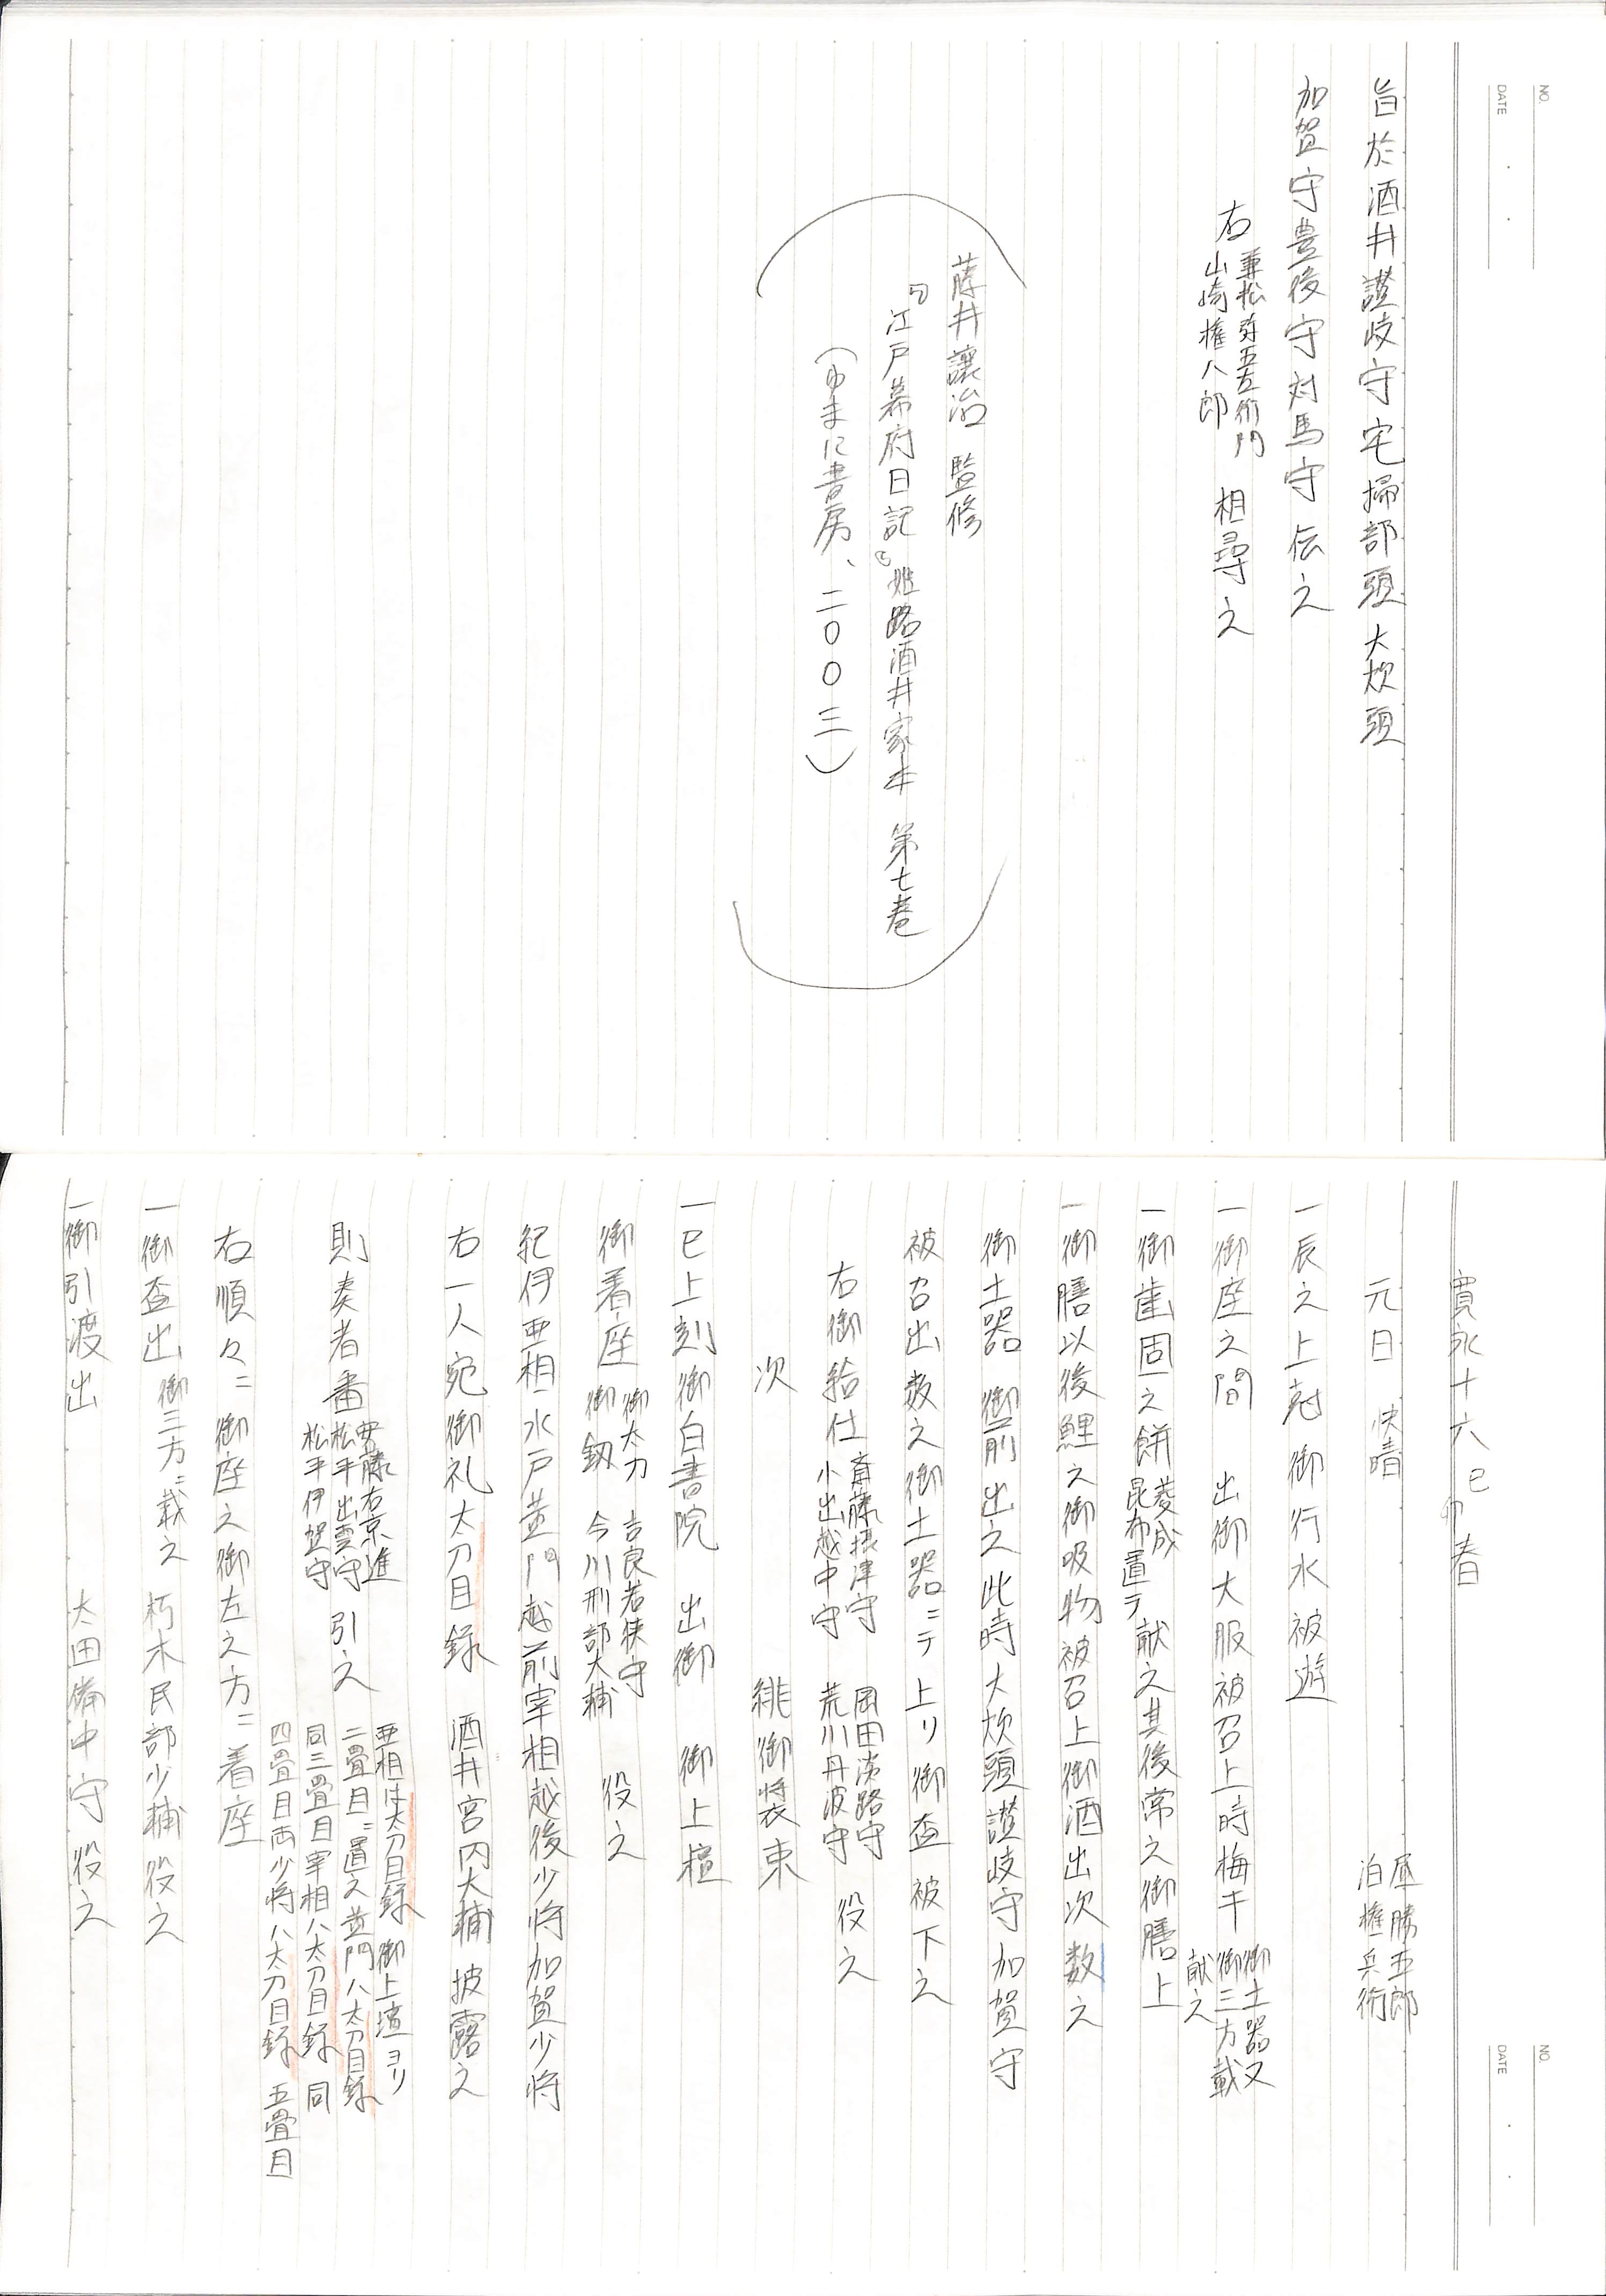 NO.
DATE
旨於酒井讃岐守宅掃部頭大炊頭
加賀守豊後守対馬守伝之
右 兼松弥五左衛門
山崎権八郎 相尋之
藤井讓治 監修
『江戸幕府日記』姫路酒井家本 第七巻
（ゆまに書房、二〇〇三）
NO.
DATE
寛永十六己卯春
元日 快晴
屋勝五郎
泊権兵衛
一辰之上刻 御行水被遊
一御座之間 出御大服被召上時梅干 御土器又
御三方載
献之
一御歯固之餅 菱成
昆布置テ 献之其後常之御膳上
一御膳以後鯉之御吸物被召上御酒出次数之
御土器 御前出之此時大炊頭讃岐守加賀守
被召出数之御土器ニテ上リ御盃被下之
右御給仕 斎藤摂津守
小出越中守 岡田淡路守
荒川丹波守 役之
次 緋御装束
一巳上刻御白書院 出御 御上檀
御着座 御太刀 吉良若狭守
御劔 今川刑部大輔 役之
紀伊亜相水戸黄門越前宰相越後少将加賀少将
右一人宛御礼太刀目録 酒井宮内大輔披露之
則奏者番 安藤右京進
松平出雲守
松平伊賀守 引之 亜相は太刀目録 御上壇ヨリ
二畳目ニ置之黄門ハ太刀目録
同三畳目宰相ハ太刀目録 同
四畳目両少将ハ太刀目録 五畳目
右順々ニ御座之御左之方ニ着座
一御盃出 御三方ニ載之 朽木民部少輔役之
一御引渡出 太田備中守役之